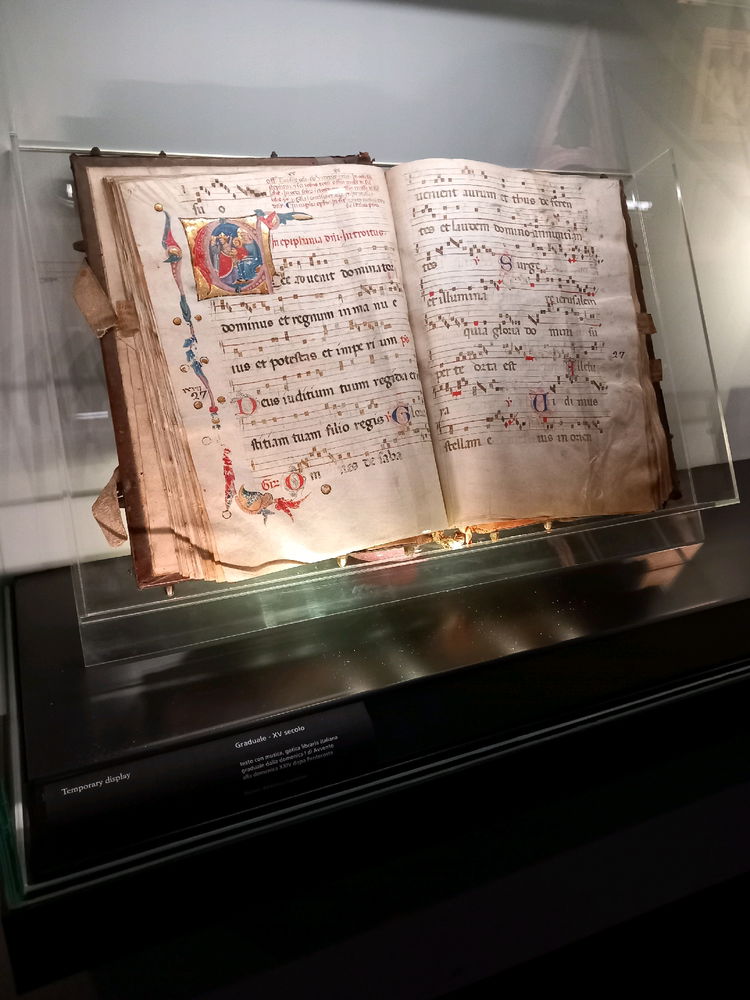 su o
In epiphania dni. Introitus.
cce advenit dominator
dominus et regnum in ma nu e
ius et potestas et impe ri um ps
Deus iuditium tuum regi da et
stitiam tuam filio regis Glo
Gr. Om nes de saba
27
uenient aurum et thus de feren
tes et laudem domino annuntian
tes Surge
et illumina re ierusalem
quia gloria do mini su
per te orta est Alleluia
27
ra Ui di mus
stellam e ius in orien
Temporary display
Graduale - XV secolo
testo con musica, gotica libraria italiana
graduale dalla domenica I di Avvento
alla domenica XXIV dopo Pentecoste